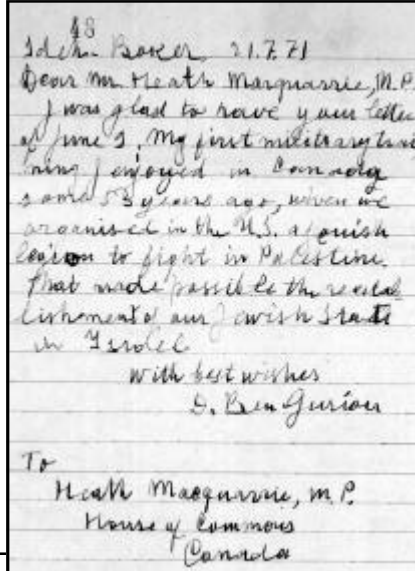 48
Sdeh Boker, 21.7.71
Dear Mr. Heath Macquarrie, M.P.
I was glad to have your letter
of June 2. My first military trai
ning I enjoyed in Canada
some 53 years ago, when we
organised in the U.S. a Jewish
legion to fight in Palestine.
That made possible the reestab
lishment of our Jewish State
in Israel
with best wishes
D. Ben Gurion
To
Heath Macquarrie, M.P.
House of Commons
Canada